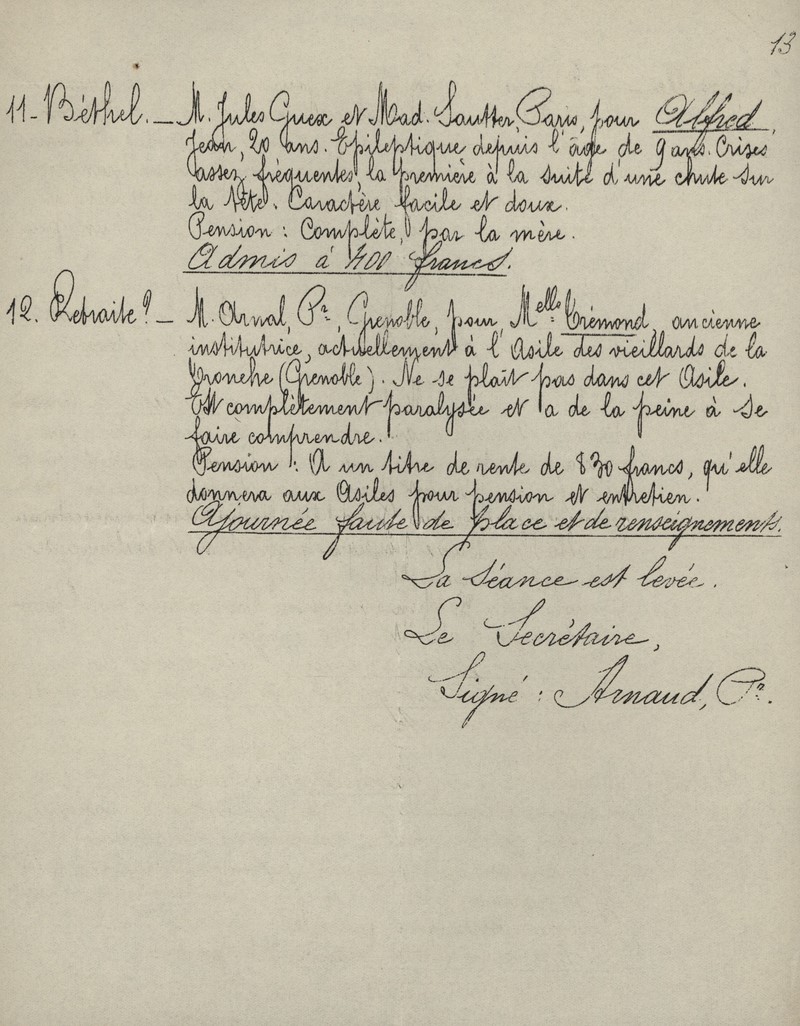 13
11- Béthel. _ M. Jules Guex et Mad. Sautter, Paris, pour Alfred,
Jean, 20 ans. Epileptique depuis l'âge de 9 ans. Crises
assez fréquentes, la première à la suite d'une chute sur
la tête. Caractère facile et doux.
Pension : Complète, par la mère.
Admis à 400 francs.
12. Retraite ? _ M. Arnal, Pr, Grenoble, pour Melle Trémond, ancienne
institutrice, actuellement à l'Asile des vieillards de la
Tronche (Grenoble). Ne se plaît pas dans cet Asile.
Est complètement paralysée et a de la peine à se
faire comprendre.
Pension : A un titre de rente de 830 francs, qu'elle
donnera aux Asiles pour pension et entretien.
Ajournée faute de place et de renseignements.
La séance est levée.
Le Secrétaire,
Signé : Arnaud, Pr.